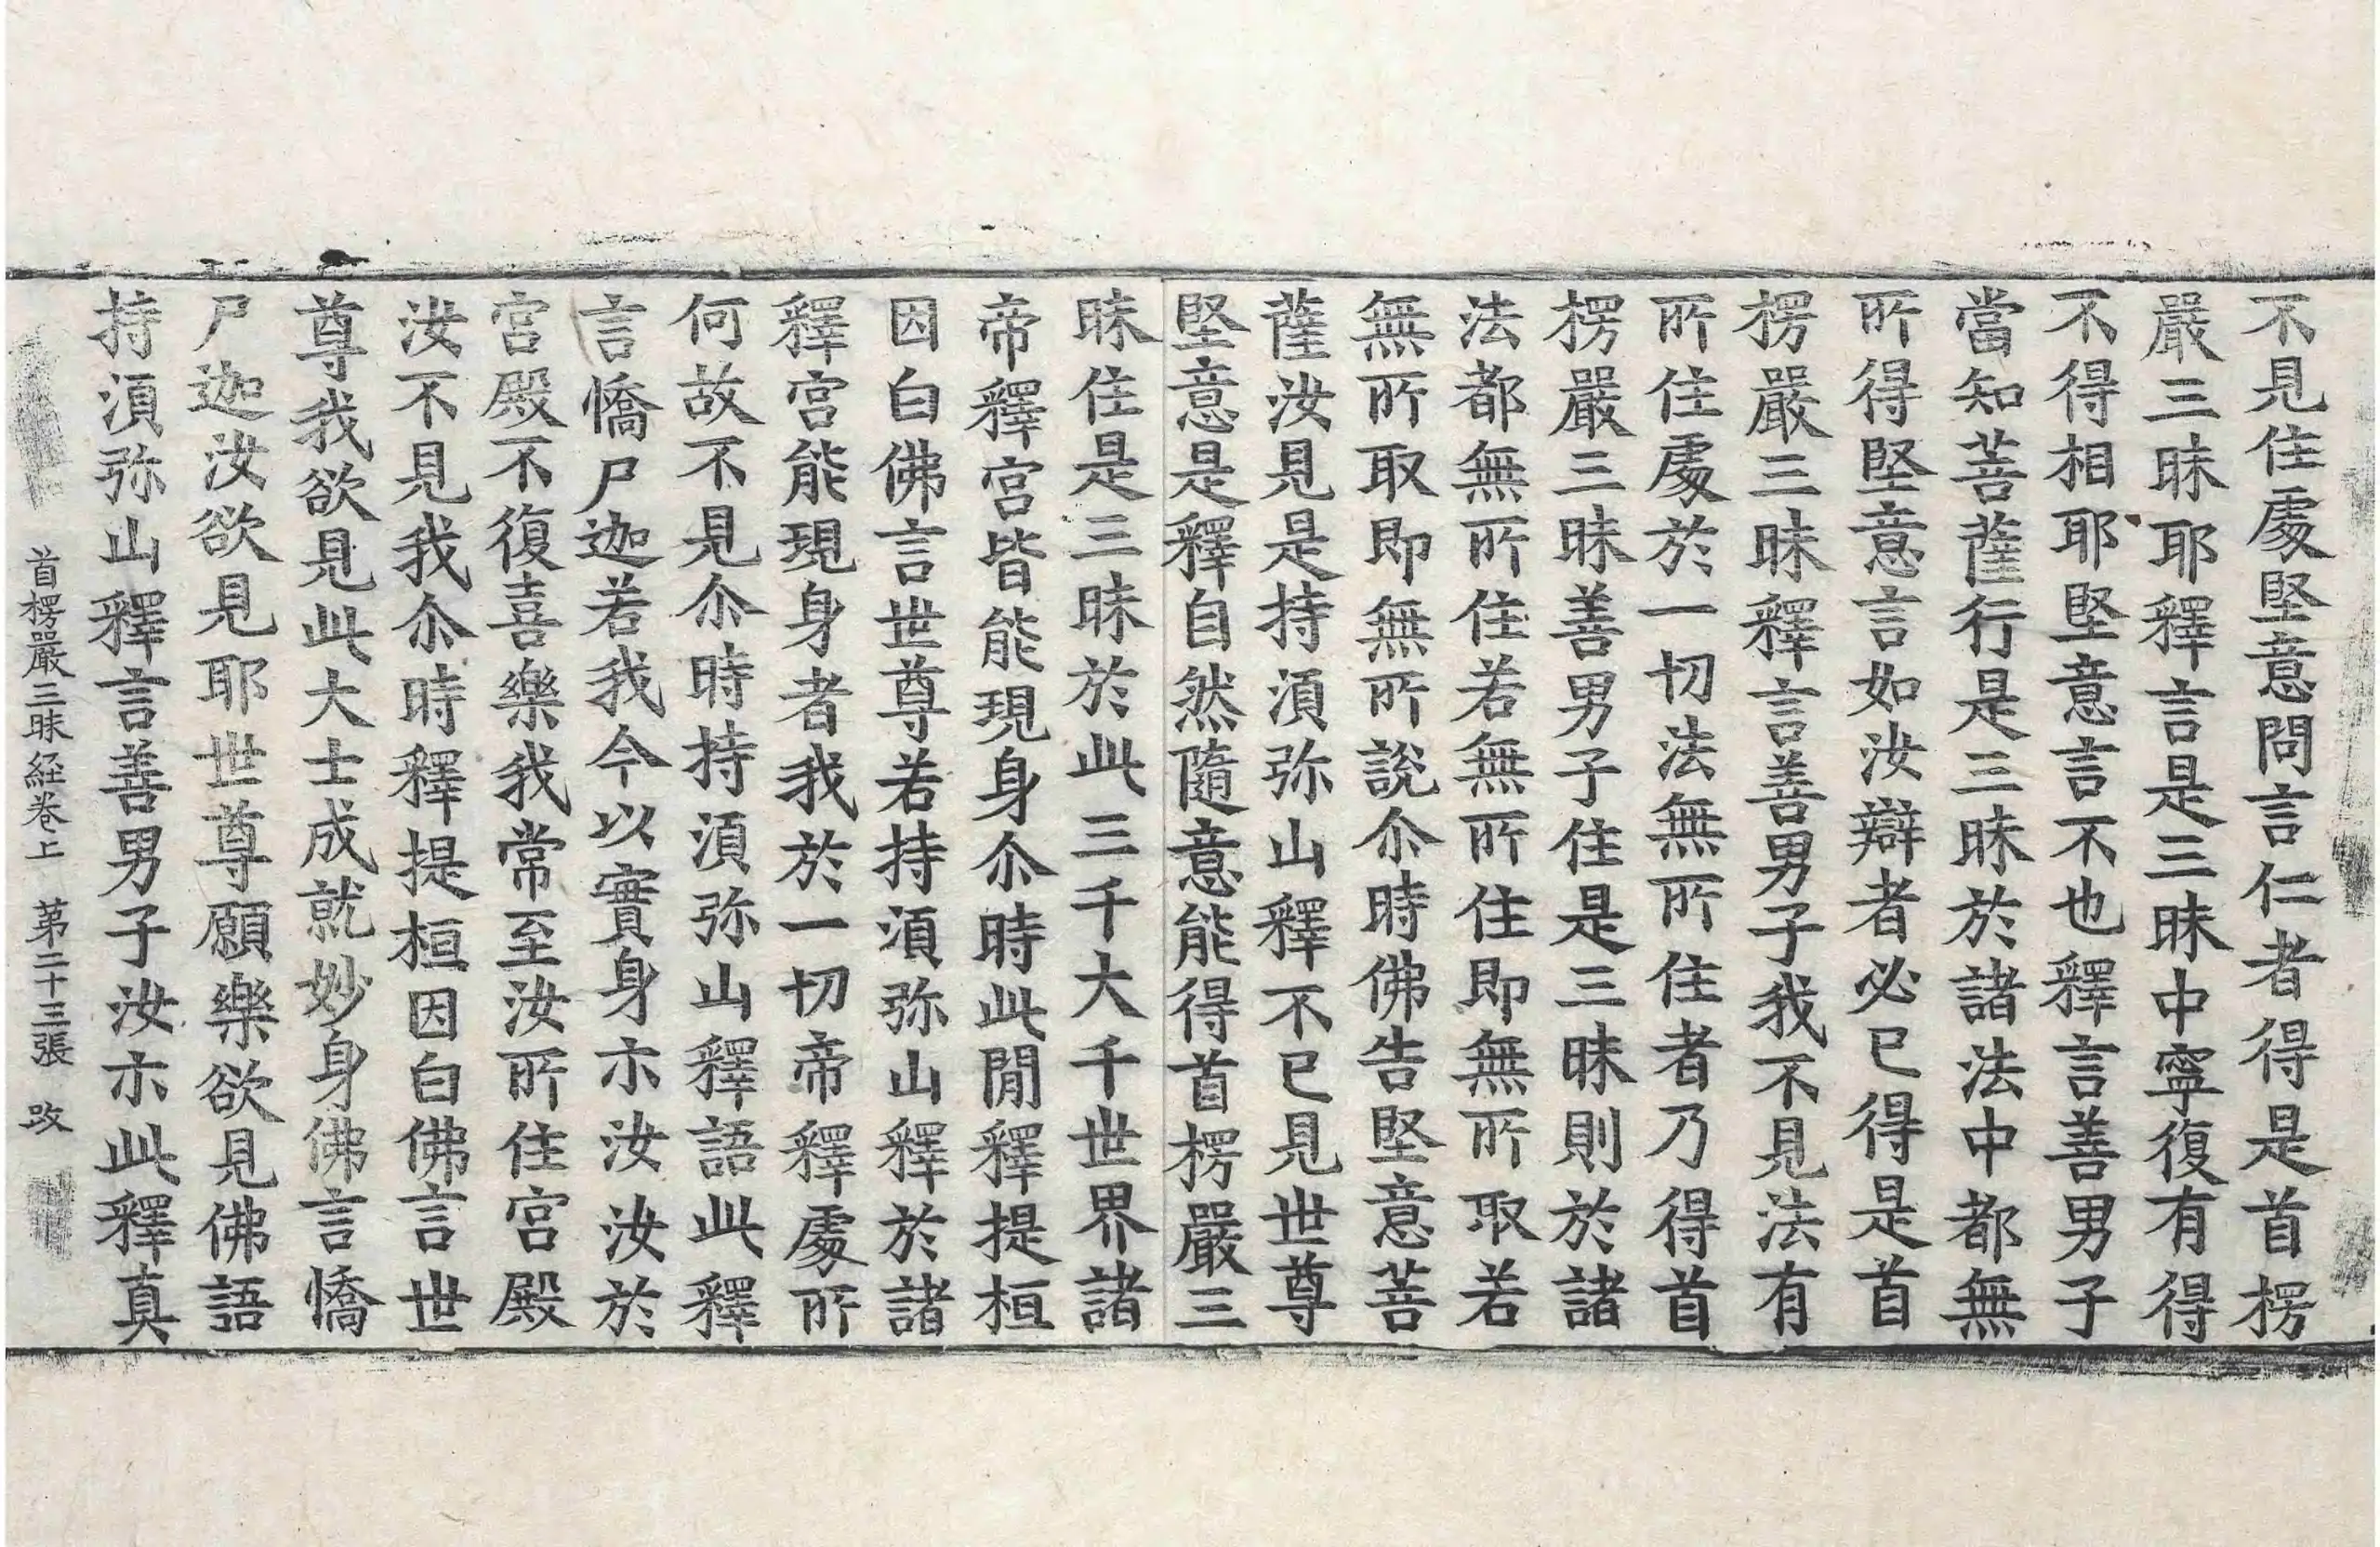 不見住處堅意問言仁者得是首楞
嚴三昧耶釋言是三昧中寧復有得
不得相耶堅意言不也釋言善男子
當知菩薩行是三昧於諸法中都無
所得堅意言如汝辯者必已得是首
楞嚴三昧釋言善男子我不見法有
所住處於一切法無所住者乃得首
楞嚴三昧善男子住是三昧則於諸
法都無所住若無所住即無所取若
無所取即無所說尒時佛告堅意菩
薩汝見是持湏弥山釋不已見世尊
堅意是釋自然隨意能得首楞嚴三
昧住是三昧於此三千大千世界諸
帝釋宮皆能現身尒時此閒釋提桓
因白佛言世尊若持湏弥山釋於諸
釋宮能現身者我於一切帝釋處所
何故不見尒時持湏弥山釋語此釋
言憍尸迦若我今以實身示汝汝於
宮殿不復喜樂我常至汝所住宮殿
汝不見我尒時釋提桓因白佛言世
尊我欲見此大士成就妙身佛言憍
尸迦汝欲見耶世尊願樂欲見佛語
持湏弥山釋言善男子汝示此釋真
首楞嚴三昧経卷上 第二十三張 改